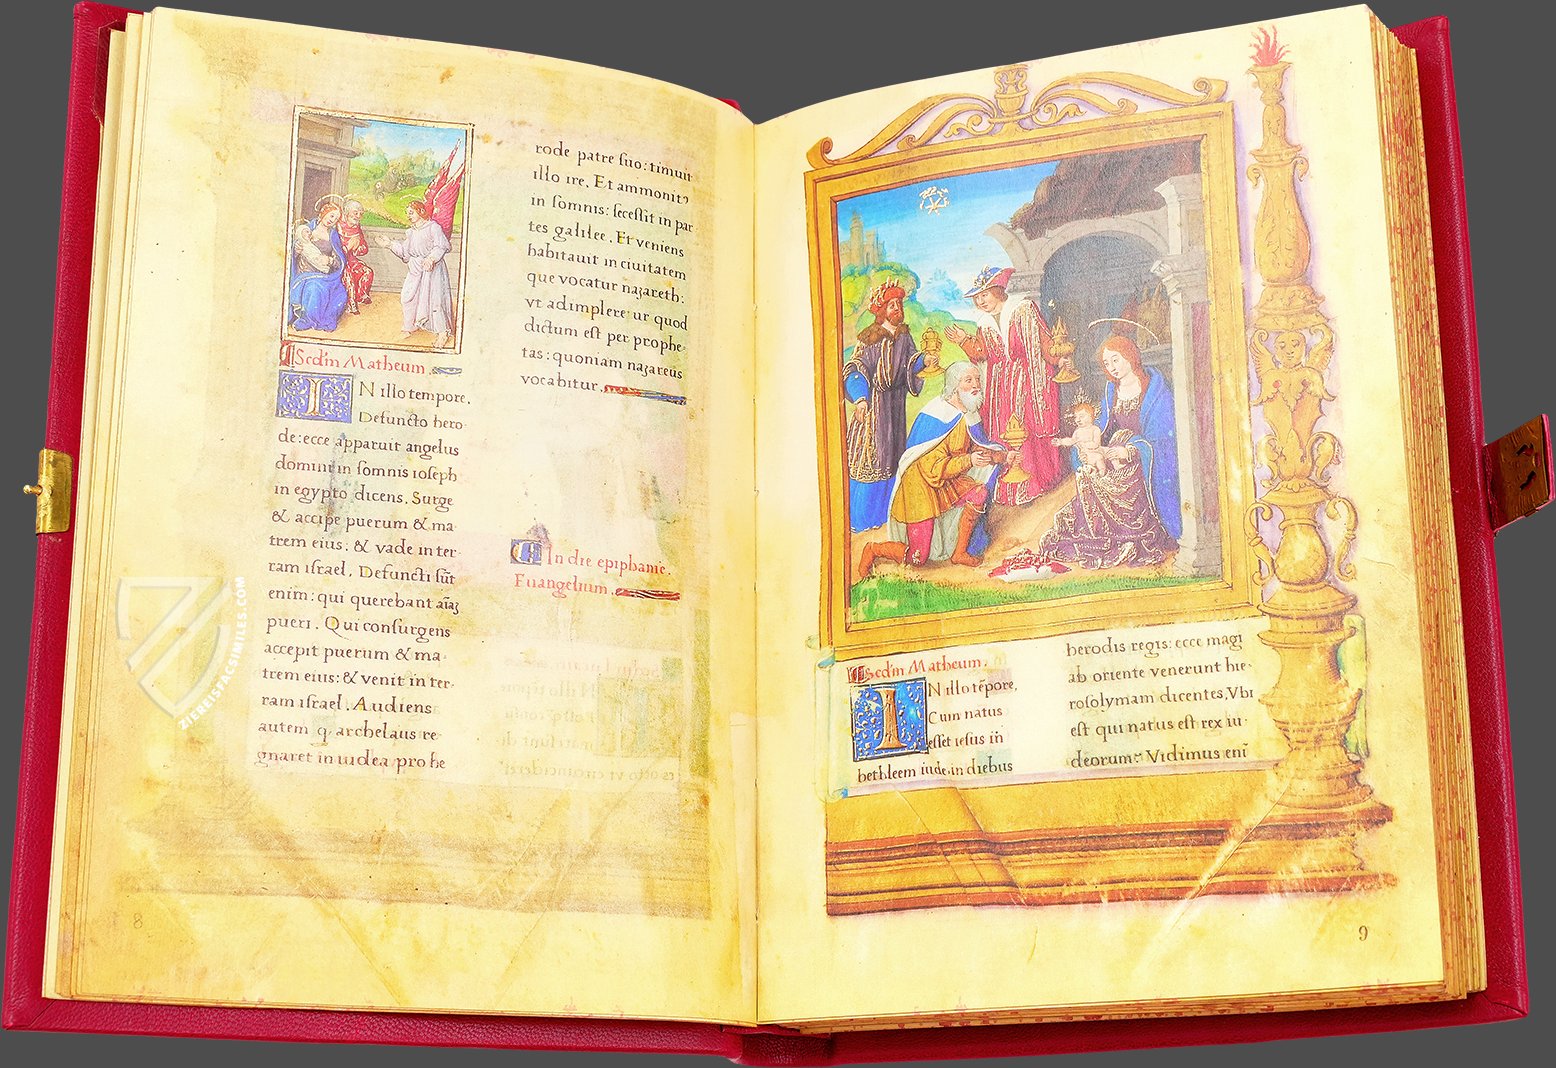 Scd'm Matheum.
IN illo tempore.
Defuncto hero-
de: ecce apparuit angelus
domini in somnis ioseph
in egypto dicens. Surge
& accipe puerum & ma-
trem eius: & vade in ter-
ram israel. Defuncti sūt
enim: qui querebant aīaȝ
pueri. Qui consurgens
accepit puerum & ma-
trem eius: & venit in ter-
ram israel. Audiens
autem q, archelaus re-
gnaret in iudea pro he
rode patre suo: timuit
illo ire. Et ammonit9
in somnis: secessit in par
tes galilee. Et veniens
habitauit in ciuitatem
que vocatur nazareth:
vt adimplere-ur quod
dictum est per prophe-
tas: quoniam nazareus
vocabitur.
In die epiphanie.
Euangelium.
8
Scd'm Matheum.
IN illo tēpore.
Cum natus
esset iesus in
bethleem iude, in diebus
herodis regis: ecce magi
ab oriente venerunt hie-
rosolymam dicentes. Vbi
est qui natus est rex iu-
deorum? Vidimus eni
9
ZIEREISFACSIMILES.COM